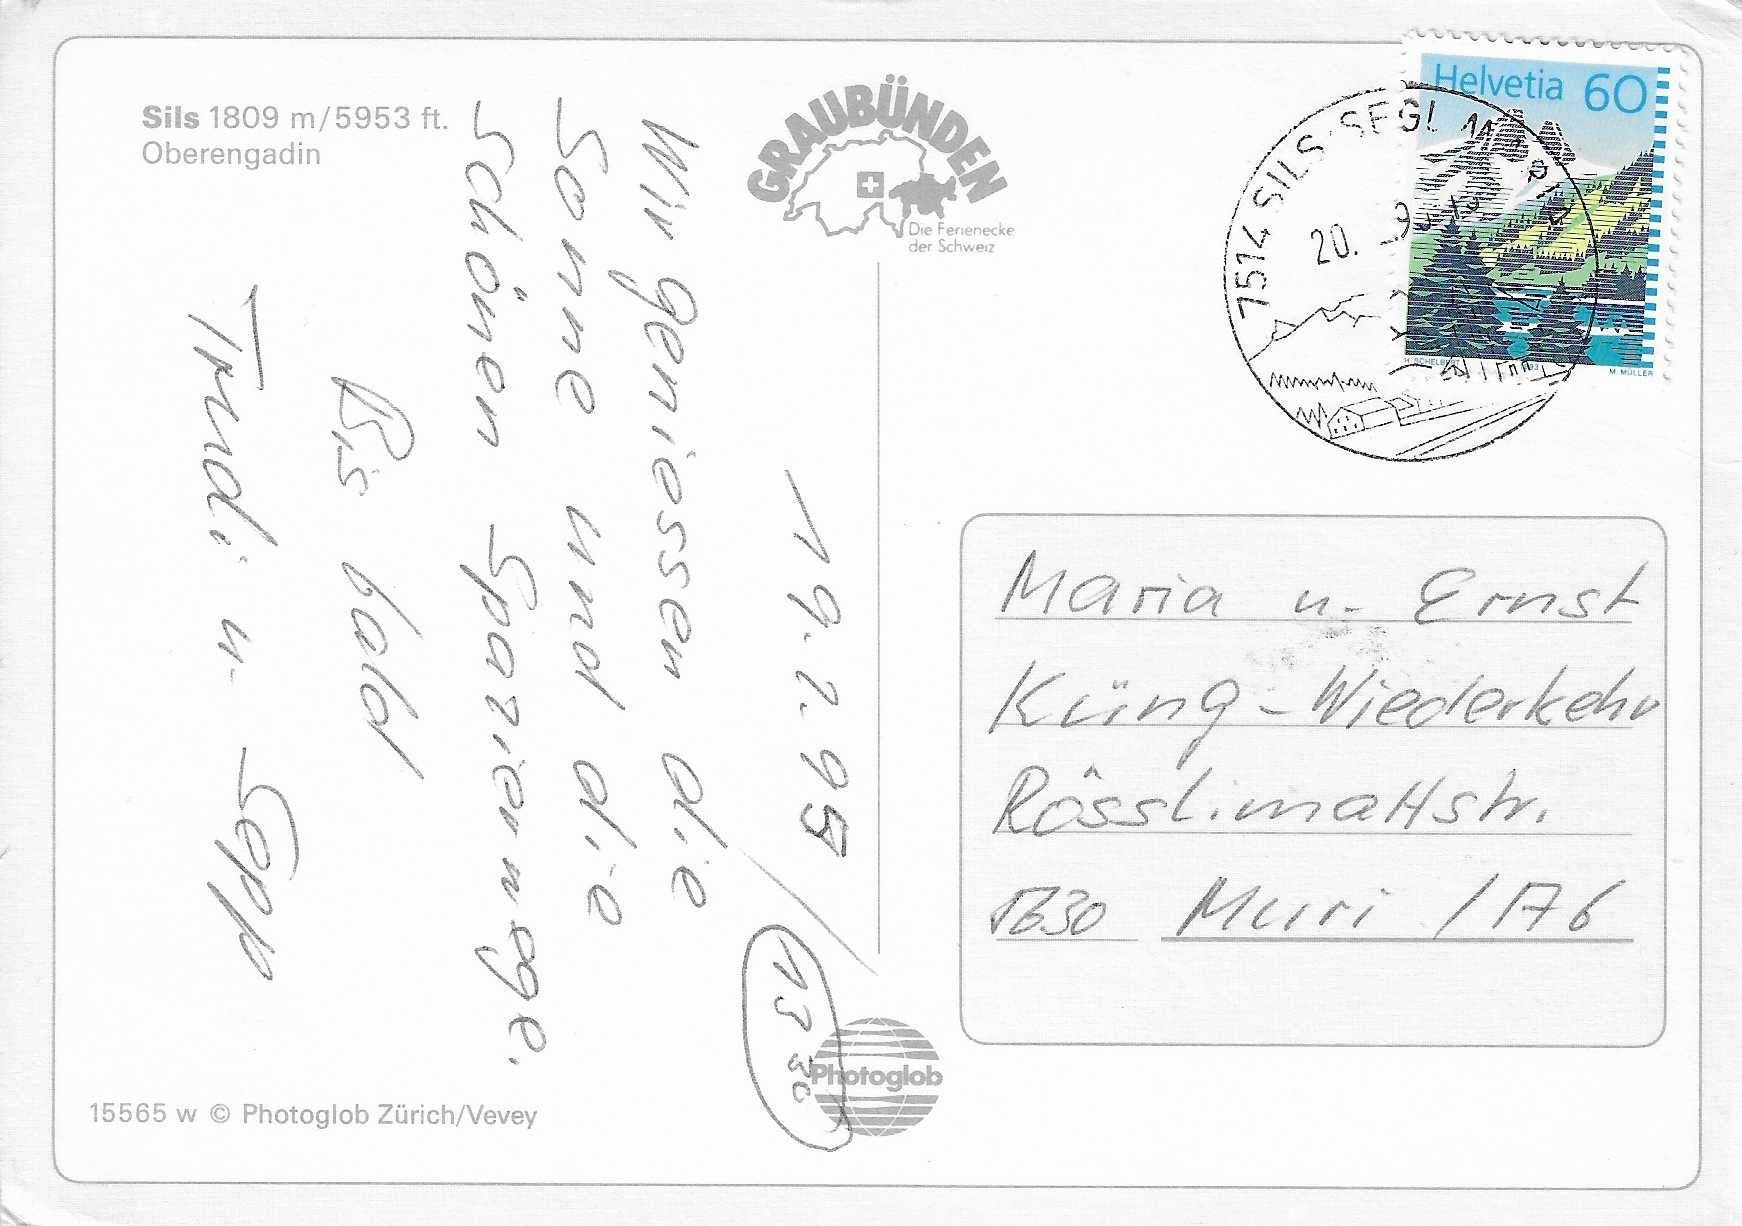 Sils 1809 m/5953 ft.
Oberengadin
GRAUBÜNDEN
Die Ferienecke
der Schweiz
Helvetia 60
H. SCHELBERT
M. MÜLLER
7514 SILS-SEGL MARIA
20.
19.2.95
13 30
Wir geniessen die
Sonne und die
schönen Spazierwege.
Bis bald
Trudi u. Sepp
Maria u. Ernst
Küng-Wiederkehr
Rösslimattstr.
5630 Muri / AG
Photoglob
15565 w © Photoglob Zürich/Vevey